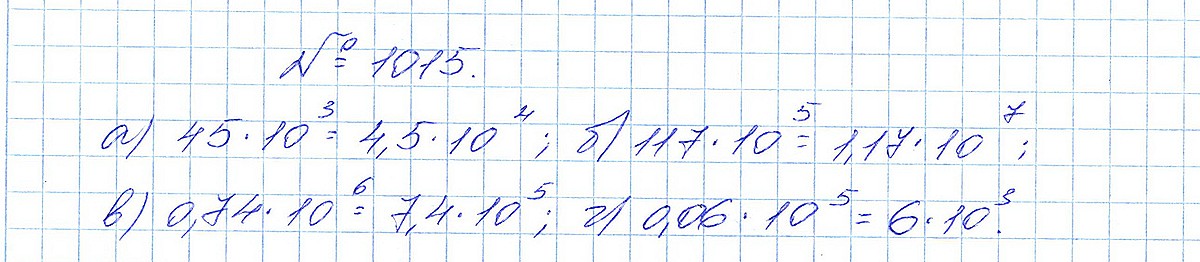 № 1015.
а) 45·10³ = 4,5·10⁴; б) 117·10⁵ = 1,17·10⁷;
в) 0,74·10⁶ = 7,4·10⁵; г) 0,06·10⁵ = 6·10³.